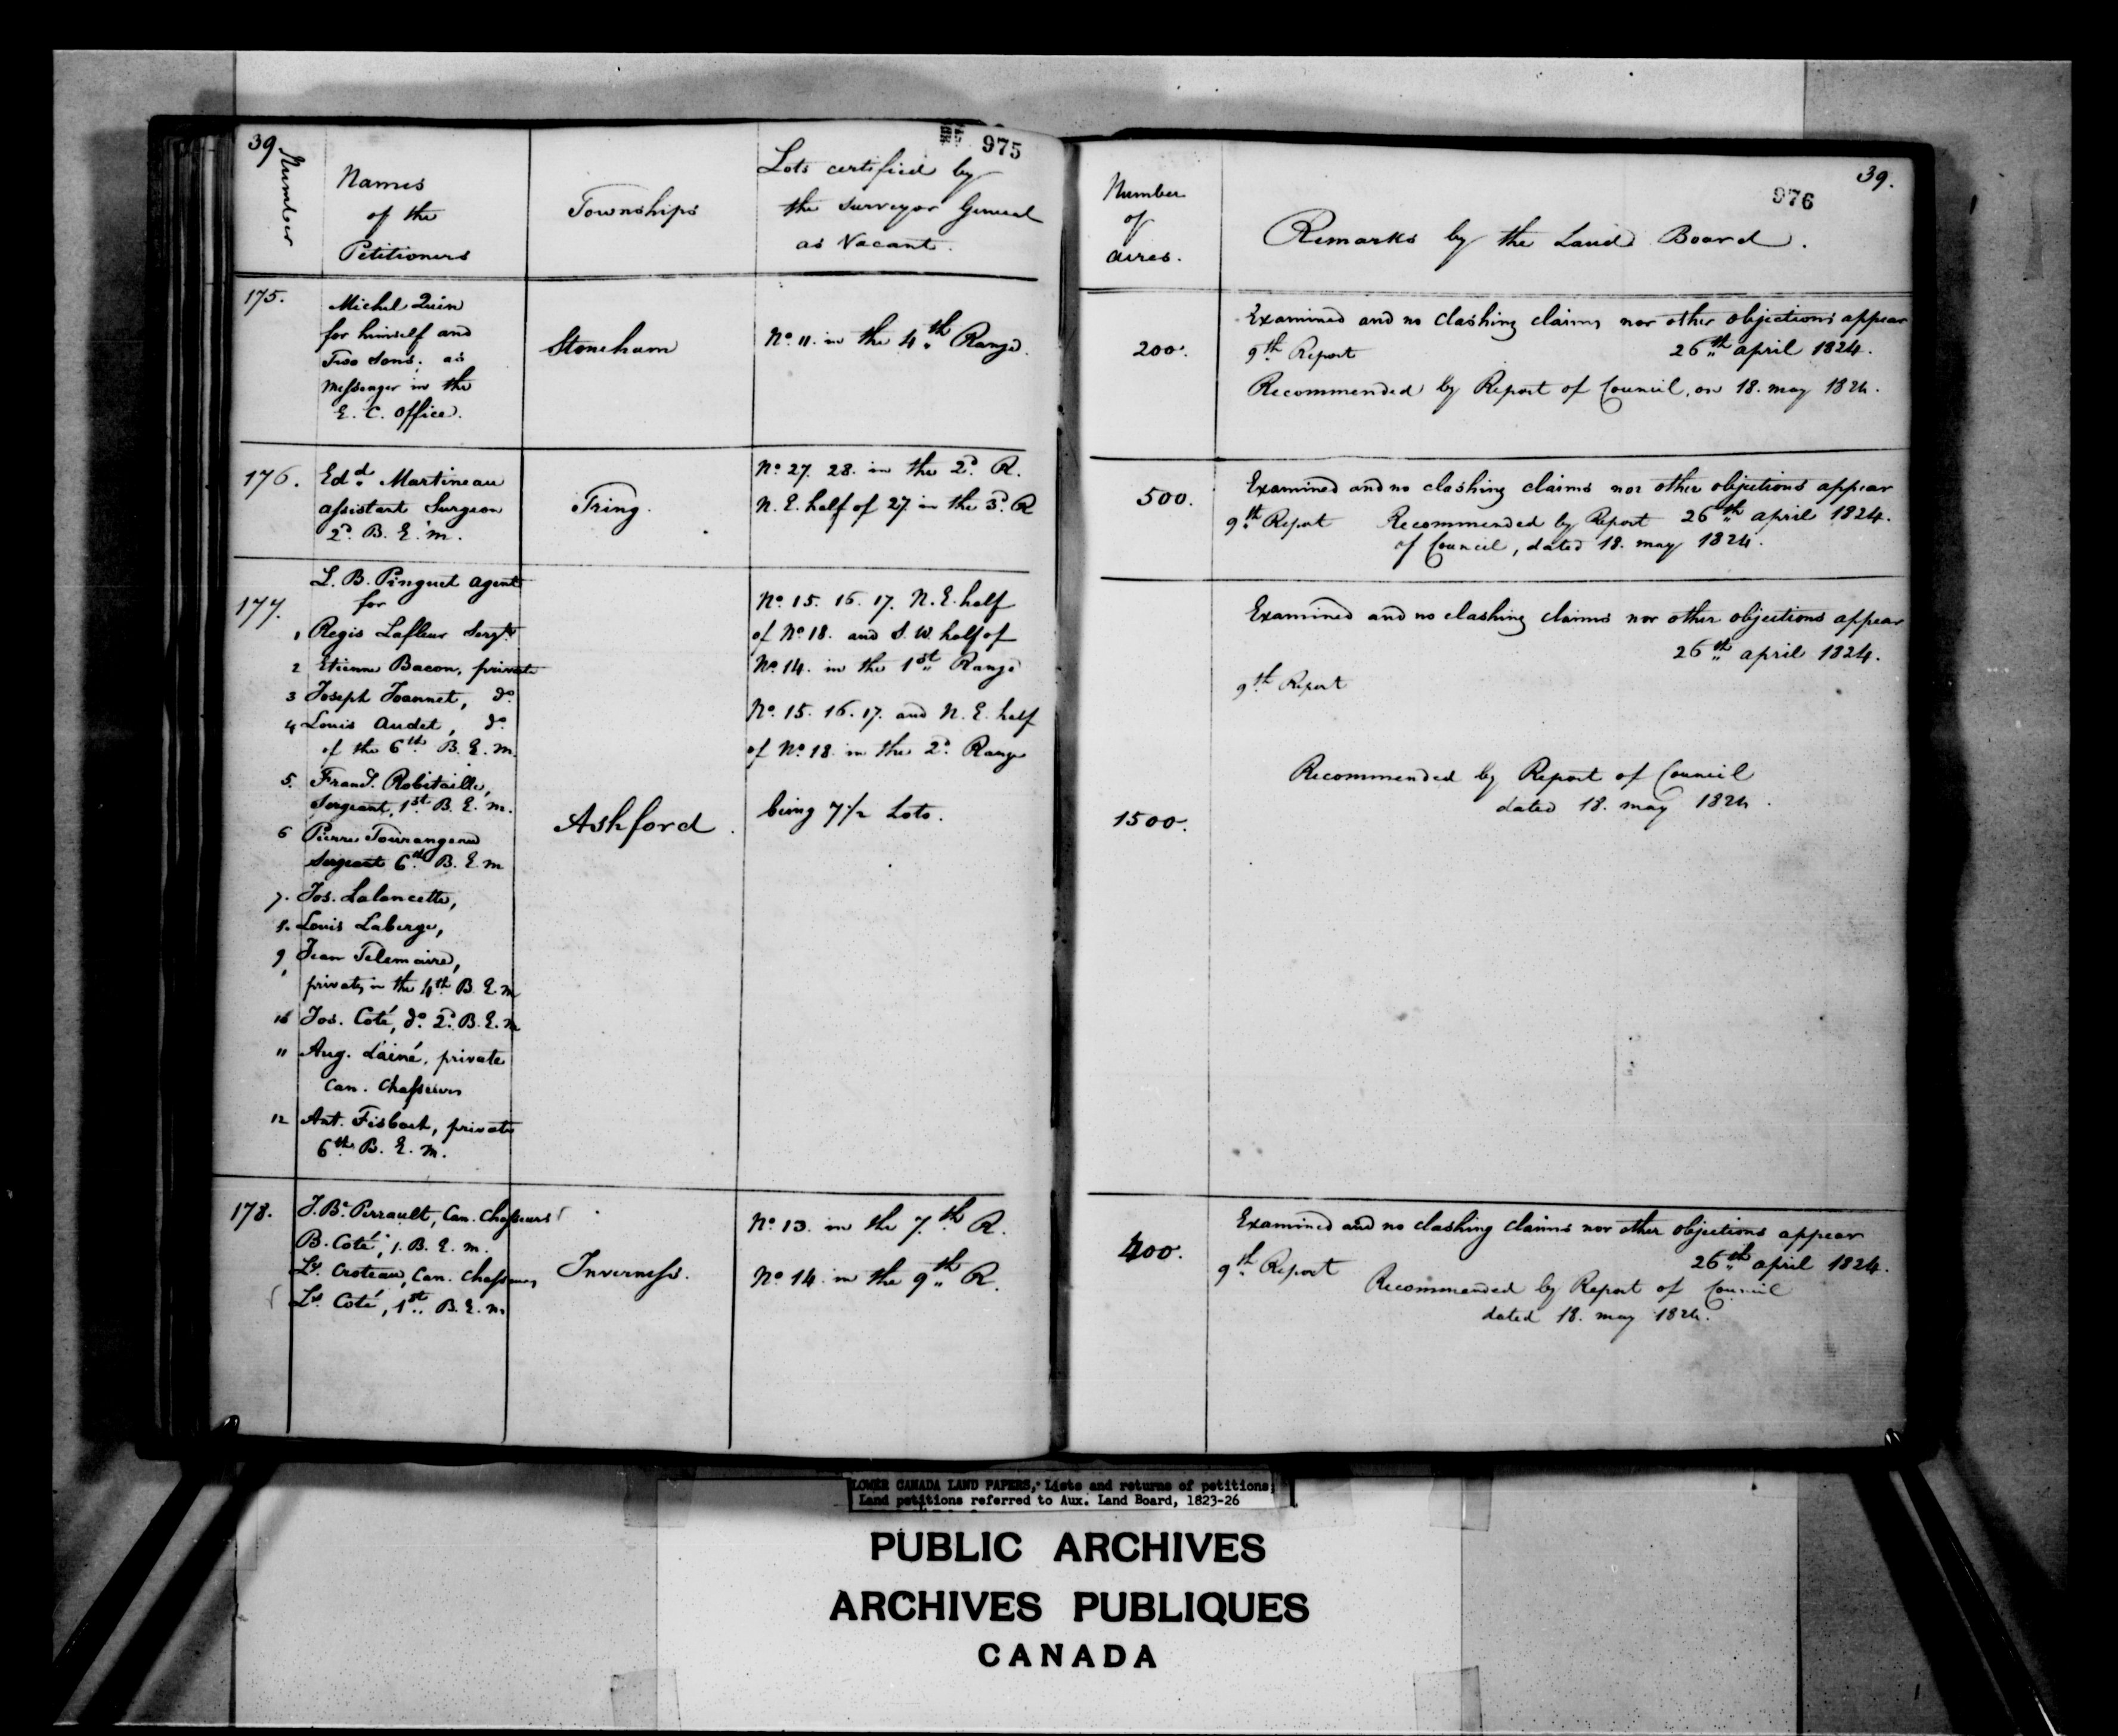 39
975
Number
Names
of the
Petitioners
Townships
Lots certified by
the Surveyor General
as Vacant.
175.
Michel Quin
for himself and
Two Sons, as
Messenger in the
E. C. Office.
Stoneham
No. 11. in the 4th Range.
176.
Edd. Martineau
assistant Surgeon
2d. B. E. M.
Tring.
No. 27. 28. in the 2d. R.
N. E. half of 27. in the 3d. R
177.
L. B. Pinguet agent
for
1 Regis Lafleur Sergt.
2 Etienne Bacon, private
3 Joseph Joannet, do.
4 Louis Audet, do.
of the 6th B. E. M.
5. Frans. Robitaille,
Sergeant, 1st B. E. M.
6 Pierre Tourangeau
Sergeant 6th B. E. M
7. Jos. Laloncette,
8. Louis Laberge,
9 Jean Telemaire,
privates in the 4th B. E. M
10 Jos. Coté, do. 2d. B. E. M
11 Aug. Lainé, private
Can. Chasseurs
12 Ant. Fisbach, private
6th B. E. M.
Ashford.
No. 15. 16. 17. N. E. half
of No. 18. and S. W. half of
No. 14. in the 1st Range
No. 15. 16. 17. and N. E. half
of No. 18. in the 2d. Range
being 7 1/2 Lots.
178.
J. Be. Perrault, Can. Chasseurs
B. Coté, 1. B. E. M.
Ls. Croteau, Can. Chasseurs
Ls. Coté, 1st. B. E. M.
Inverness.
No. 13. in the 7th R.
No. 14. in the 9th R.
39.
976
Number
of
acres.
Remarks by the Land Board.
200.
Examined and no clashing claims nor other objections appear
9th Report 26th april 1824.
Recommended by Report of Council, on 18. may 1824.
500.
Examined and no clashing claims nor other objections appear
9th Report Recommended by Report 26th april 1824.
of Council, dated 18. may 1824.
1500.
Examined and no clashing claims nor other objections appear
26th april 1824.
9th Report
Recommended by Report of Council
dated 18. may 1824.
400.
Examined and no clashing claims nor other objections appear
26th april 1824.
9th Report Recommended by Report of Council
dated 18. may 1824.
LOWER CANADA LAND PAPERS, Lists and returns of petitions;
Land petitions referred to Aux. Land Board, 1823-26
PUBLIC ARCHIVES
ARCHIVES PUBLIQUES
CANADA